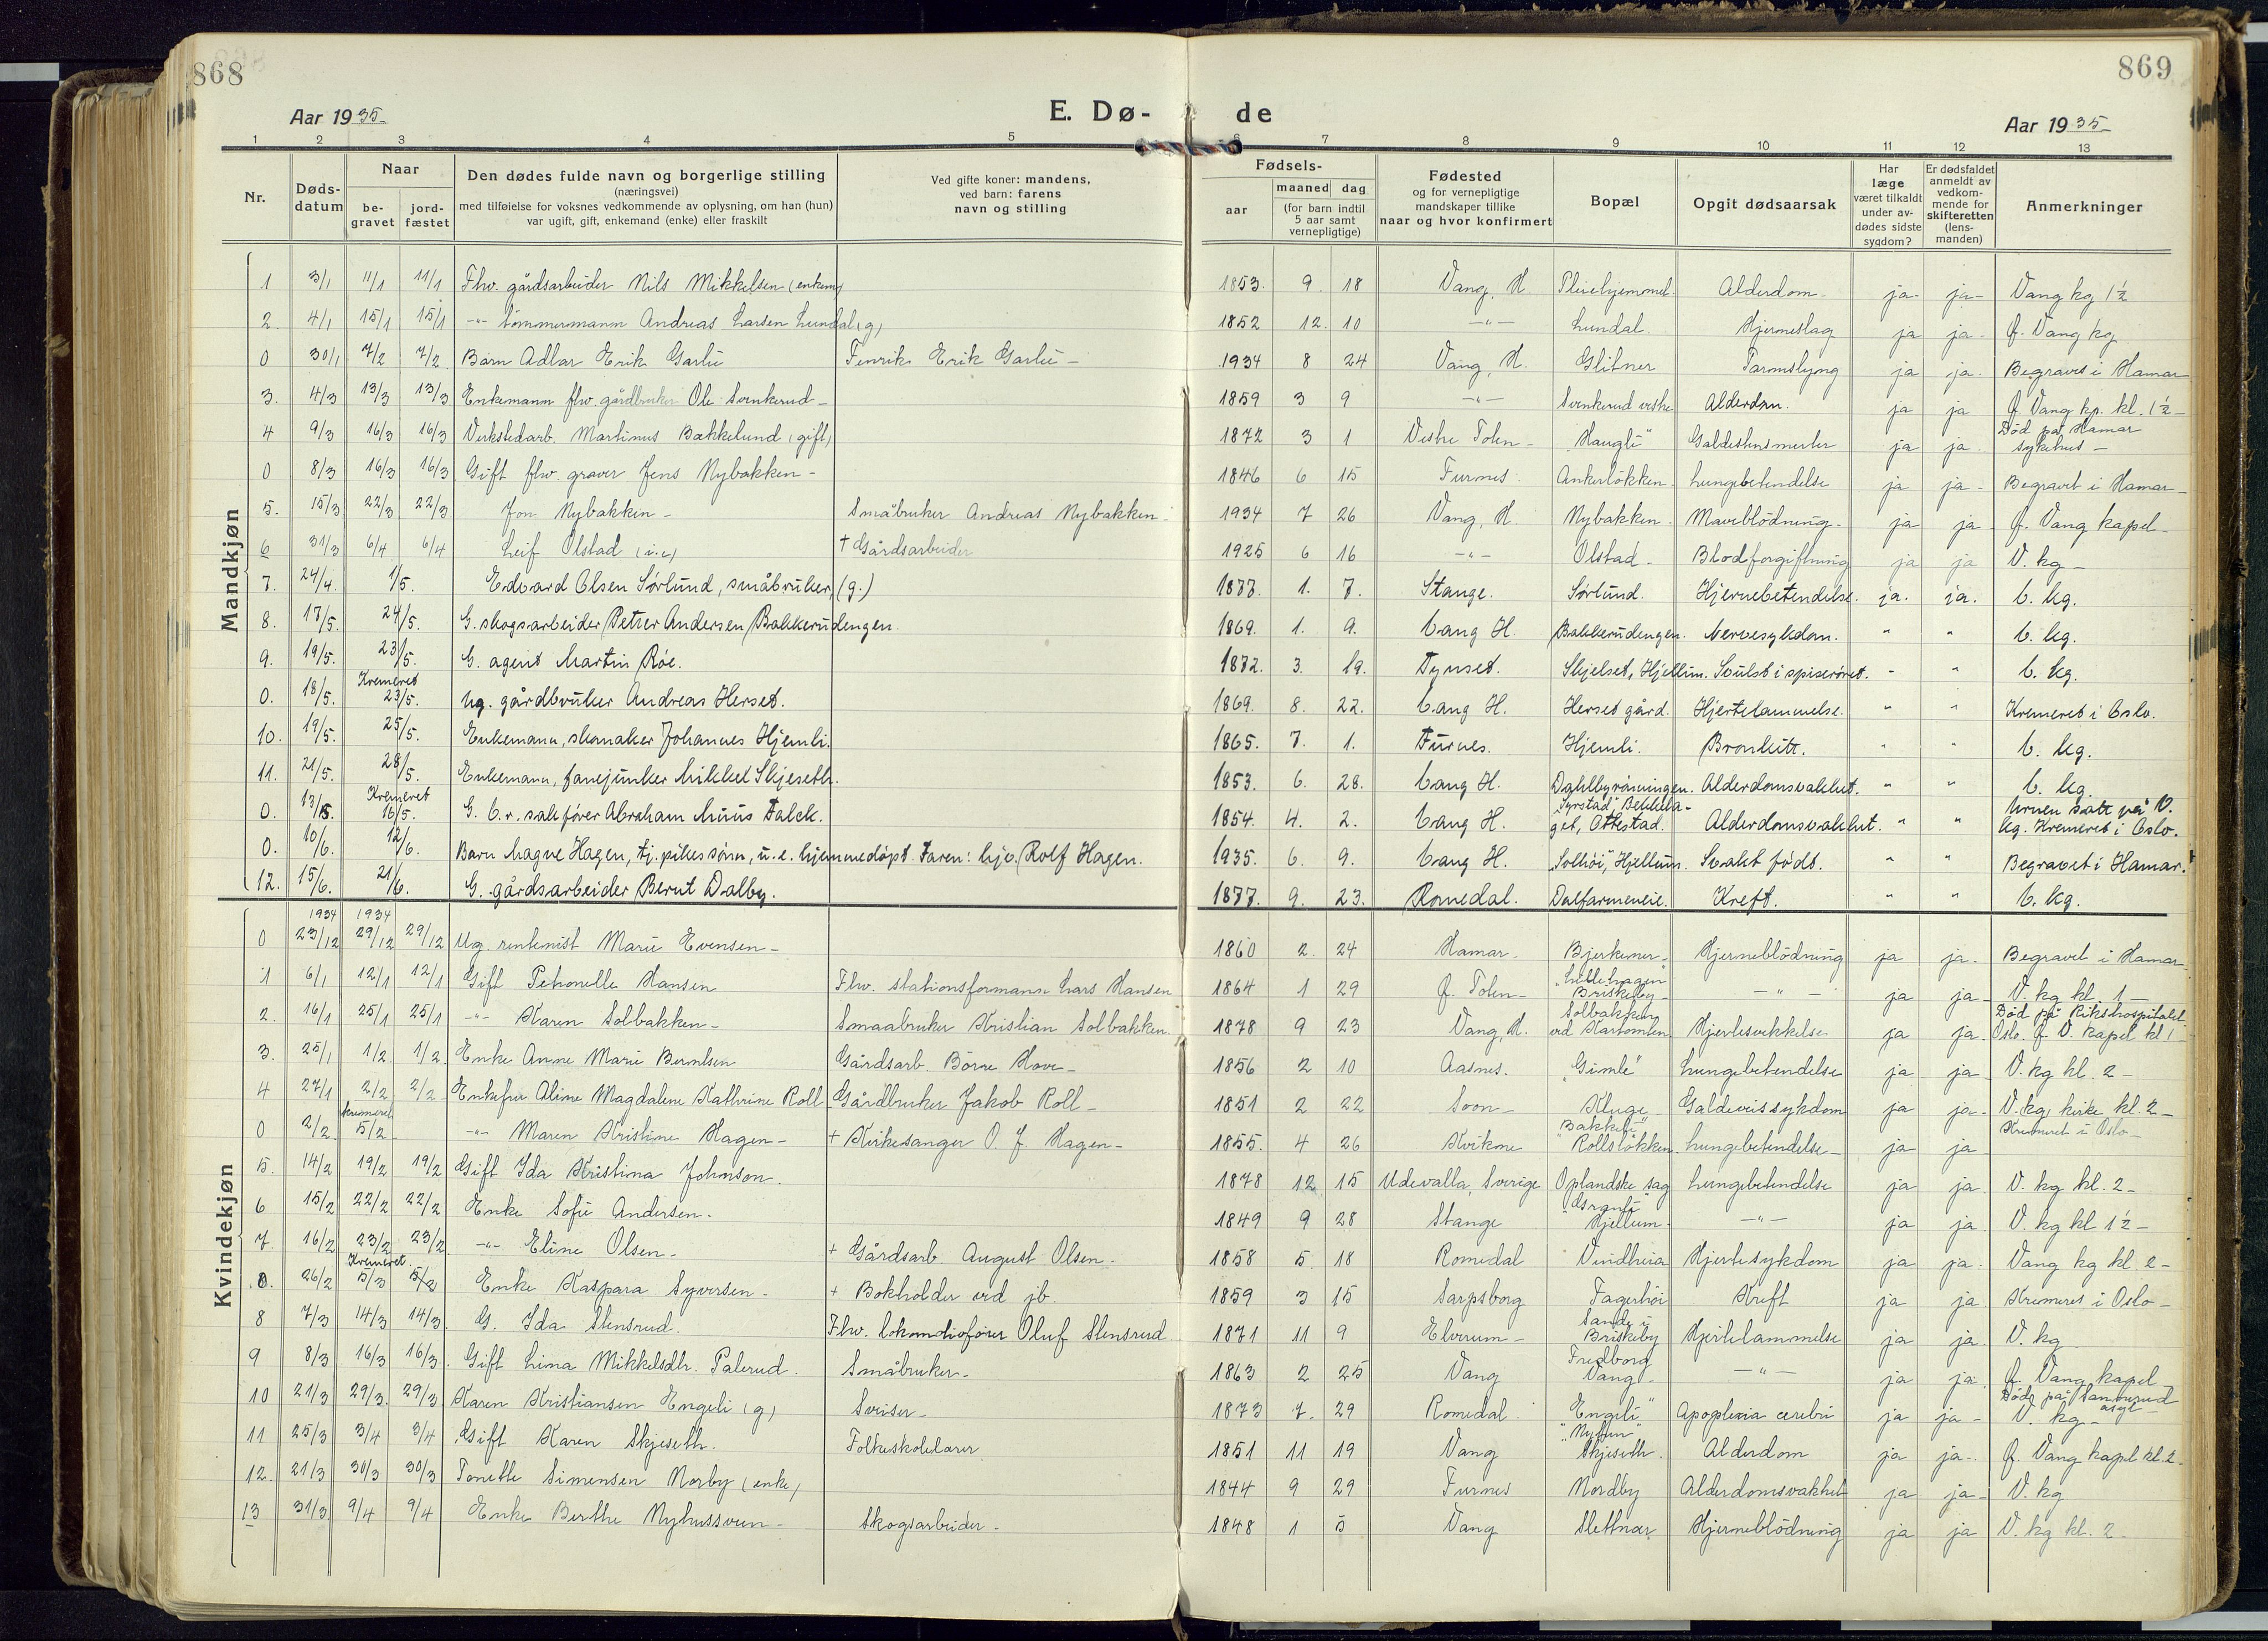 868
869
Aar 1935
E. Dø- de
Aar 1935
1 2 3 4 5 6 7 8 9 10 11 12 13
Nr.
Døds-
datum
Naar
be-
gravet
jord-
fæstet
Den dødes fulde navn og borgerlige stilling
(næringsvei)
med tilføielse for voksnes vedkommende av oplysning, om han (hun)
var ugift, gift, enkemand (enke) eller fraskilt
Ved gifte koner: mandens,
ved barn: farens
navn og stilling
Fødsels-
aar
maaned dag
(for barn indtil
5 aar samt
vernepligtige)
Fødested
og for vernepligtige
mandskaper tillike
naar og hvor konfirmert
Bopæl
Opgit dødsaarsak
Har
læge
været tilkaldt
under av-
dødes sidste
sygdom?
Er dødsfaldet
anmeldt av
vedkom-
mende for
skifteretten
(lens-
manden)
Anmerkninger
Mandkjøn
1 3/1 11/1 11/1 Fhv. gårdsarbeider Nils Mikkelsen (enkem) 1853. 9. 18 Vang, H Pleiehjemmet. Alderdom. ja- ja- Vang kg 1½
2. 4/1 15/1 15/1 -"- tömmermann Andreas Larsen Lundal (g) 1852 12. 10 -"- Lundal. Hjerneslag ja ja- f. Vang kg
0 30/1 7/2 7/2 Barn Adlar Erik Garlie Fenrik Erik Garlie - 1934 8 24 Vang, H. Glitner Tarmslyng ja ja. Begravet i Hamar
3. 4/3 13/3 13/3 Enkemann fhv. gårdbruker Ole Svenkerud - 1859 3 9 -"- Svenkerud vestre Alderdom. ja ja f. Vang kp. kl. 1½ -
4 9/3 16/3 16/3 Verkstedarb. Martinus Bækkelund (gift) 1872 3 1 Vestre Toten - "Haugli" Galdestensmerter ja ja. Död på Hamar
sykehus -
0 8/3 16/3 16/3 Gift fhv. graver Jens Nybakken - 1846 6 15 Furnes Ankerløkken. Lungebetendelse ja ja- Begravet i Hamar -
5. 15/3 22/3 22/3 Jon Nybakken - Småbruker Andreas Nybakken - 1934 7 26 Vang, H. Nybakken. Maveblödning. ja ja f. Vang kapel -
6 31/3 6/4 6/4 Leif Olstad (i.e) + Gårdsarbeider 1925 6 16 -"- Olstad - Blodforgiftning ja ja V. kg -
7. 24/4. 1/5. Edvard Olsen Sørlund, småbruker, (g.) 1877. 1. 7. Stange. Sørlund. Hjernebetendelse. ja. ja. V. kg.
8. 17/5. 24/5. G. skogsarbeider Petter Andersen Bakkerudengen. 1869. 1. 9. Vang H. Bakkerudengen. Nervesykdom. " " V. kg.
9. 19/5. 23/5. G. agent Martin Røe. 1872. 3. 19. Tynset. Skjelset, Hjellum. Svulst i spiserøret. " " V. kg.
0. 18/5. Kremeret
23/5. Ug. gårdbruker Andreas Herset. 1869. 8. 22. Vang H. Herset gård. Hjertelammelse. " " Kremeret i Oslo.
10. 19/5. 25/5. Enkemann, skomaker Johannes Hjemli. 1865. 7. 1. Furnes. Hjemli. Bronkitt. " " V. kg.
11. 21/5. 28/5. Enkemann, fanejunker Mikkel Skjeseth. 1853. 6. 28. Vang H. Dahlbyrønningen. Alderdomsvakket. " " V. kg.
0. 13/5. Kremeret
16/5. G. O.r. sakfører Abraham Muus Falck. 1854. 4. 2. Vang H. "Fyrstad", Bekkela-
get, Ottestad. Alderdomsvakket. " " Urnen satt på V.
kg. Kremeret i Oslo.
0. 10/6. 12/6. Barn Magne Hagen, tj. pikes sønn, u.e. hjemmedøpt. Faren: hjv. Rolf Hagen. 1935. 6. 9. Vang H. "Solhøi", Hjellum. Svakt født. " " Begravet i Hamar.
12. 15/6. 21/6. G. gårdsarbeider Bernt Dalby. 1877. 9. 23. Romedal. Dalfarmeneie. Kreft. " " V. kg.
Kvindekjøn
1934 1934
0 23/12 29/12 29/12 Ug. rentenist Marie Evensen - 1860 2. 24 Hamar. Bjerkener - Hjerneblödning ja ja- Begravet i Hamar
1 6/1 12/1 12/1 Gift Petronelle Hansen Fhv. stationsformann Lars Hansen 1864 1 29 Ö. Toten - "Lillehagen"
Briskeby - -"- ja ja- V. kg kl. 1 -
2. 16/1 25/1 25/1 -"- Karen Solbakken - Smaabruker Kristian Solbakken. 1878 9 23 Vang, H. Solbakken
ved Kartomten Hjertesvekkelse ja ja- Död på Rikshospitalet
Oslo. f. V kapel kl 1 -
3. 25/1 1/2. 1/2. Enke Anne Marie Berntsen Gårdsarb. Börre Hove - 1856 2 10 Aasnes. "Gimle" Lungebetendelse ja ja- V. kg kl. 2 -
4 27/1 2/2 2/2 Enkefru Aline Magdalene Kathrine Roll Gårdbruker Jakob Roll - 1851 2 22 Soon - Kluge - Galdeveissykdom ja ja- V. kg, kirke kl. 2 -
0 2/2. kremeret
5/2 -"- Maren Kristine Hagen - + Kirkesanger O. J. Hagen - 1855. 4 26 Kvikne "Bakkeli"
Rollsløkken. Lungebetendelse - ja ja- Kremeret i Oslo -
5. 14/2 19/2 19/2 Gift Ida Kristina Johnson. 1878 12 15 Udevalla, Sverige Oplandske sag Lungebetendelse ja ja V. kg kl. 2 -
6 15/2 22/2 22/2 Enke Sofie Andersen. 1849 9 28 Stange Hjellum. -"- ja ja V. kg kl 1½ -
7. 16/2 23/2 23/2 -"- Eline Olsen - + Gårdsarb. August Olsen. 1858 5. 18 Romedal Vindheia Hjertesykdom ja ja. Vang kg kl. 2 -
0. 26/2 Kremeret.
5/3 5/3 Enke Kaspara Syversen - + Bokholder ved jb. 1859 3 15 Sarpsborg Fagerhöi Kreft ja ja Kremeret i Oslo -
8 7/3 14/3 14/3 G. Ida Stensrud. Fhv. lokomotivförer Oluf Stensrud 1871 11 9 Elverum - Sande i
Briskeby Hjertelammelse ja ja V. kg
9 8/3 16/3 16/3. Gift Lina Mikkelsdtr. Palerud. Småbruker. 1863 2 25 Vang Fredborg
Vang - -"- ja ja f. Vang kapel
10 21/3 29/3. 29/3 Karen Kristiansen Engeli (g) Sveiser - 1873 7. 29 Romedal "Engeli" Apoplexia cerebri ja ja- Död på Sanderud
asyl -
V. kg -
11 25/3 3/4 3/4 Gift Karen Skjeseth. Folkeskolelærer 1851 11 19 Vang "Nytun"
Skjeseth. Alderdom ja ja-. f. Vang kapel kl. 2 -
12. 21/3 30/3 30/3 Tonette Simensen Norby (enke) 1844 9 29 Furnes Nordby Alderdomsvakhet ja ja- V. kg
13 31/3 9/4 9/4 Enke Berthe Nyhussveen - Skogsarbeider - 1848 1 5 Vang Slettnær Hjerneblödning ja ja V. kg kl. 2